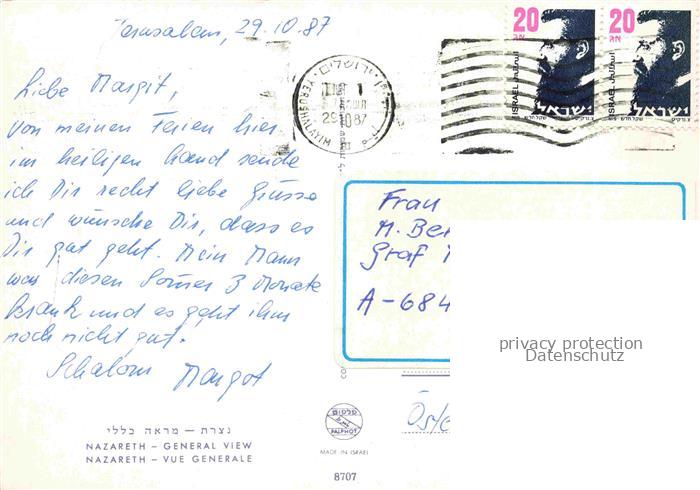 Jerusalem, 29.10.87
Liebe Margit,
von meinen Ferien hier
im heiligen Land sende
ich Dir recht liebe Grüsse
und wünsche Dir, dass es
Dir gut geht. Mein Mann
war diesen Sommer 3 Monate
krank und es geht ihm
noch nicht gut.
Schalom Margot
נצרת — מראה כללי
NAZARETH – GENERAL VIEW
NAZARETH – VUE GENERALE
ירושלים
YERUSHALAYIM
29 10 87
20 20
אג אג
ISRAEL ישראל
ISRAEL ישראל
Frau
M. Be
Graf
A-684
privacy protection
Datenschutz
פלפוט
PALPHOT
Öste
MADE IN ISRAEL
8707